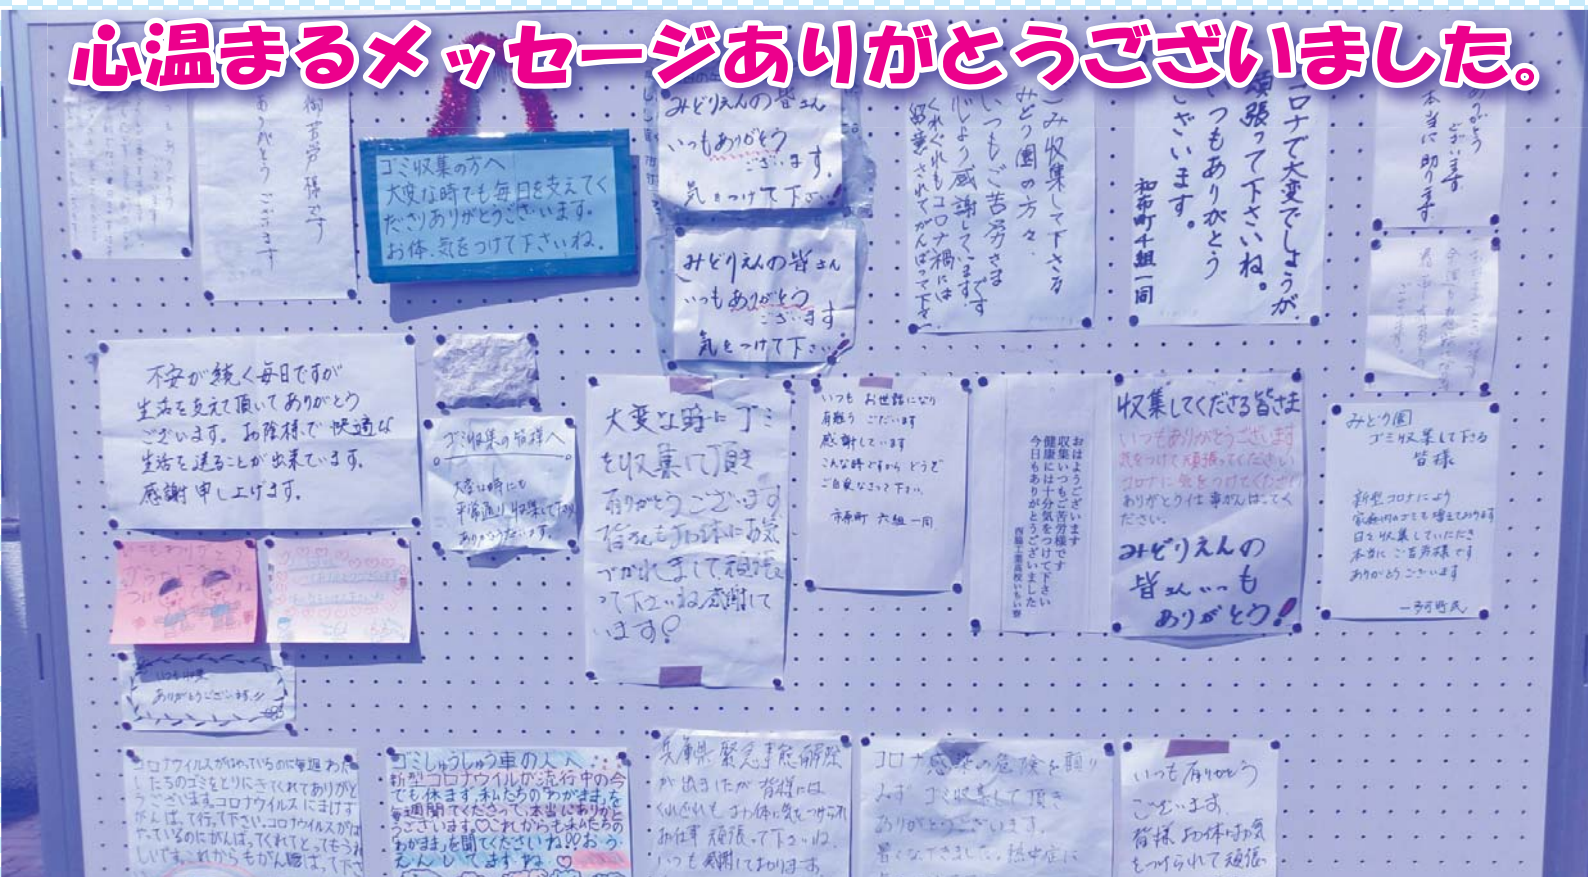 心温まるメッセージありがとうございました。
御苦労様です
ありがとうございます
ゴミ収集の方へ
大変な時でも毎日を支えてく
ださりありがとうございます。
お体、気をつけて下さいね。
みどりえんの皆さん
いつもありがとう
ございます。
気をつけて下さい
みどりえんの皆さん
いつもありがとう
ございます
気をつけて下さい!
ごみ収集して下さる
みどり園の方々、
いつもご苦労さまです
心より感謝しています。
くれぐれもコロナ禍には
留意されてがんばって下さい
コロナで大変でしょうが
頑張って下さいね。
いつもありがとう
ございます。
和布町千組一同
ございます
本当に助ります
不安が続く毎日ですが
生活を支えて頂いてありがとう
ございます。お陰様で快適な
生活を送ることが出来ています。
感謝申し上げます。
ゴミ収集の皆様へ
大変な時にも
平常通り収集して下さり
ありがとうございます。
大変な時にゴミ
を収集して頂き
有りがとうございます
皆さんもお体にお気
づかれまして頑張
って下さいね感謝して
います
いつもお世話になり
有難うございます
感謝しています
こんな時ですからどうぞ
ご自愛なさって下さい。
市原町 六組一同
おはようございます
収集いつもご苦労様です
健康には十分気をつけて下さい
今日もありがとうございました
西脇工業高校いちい寮
収集してくださる皆さま
いつもありがとうございます
気をつけて頑張ってください
コロナに気をつけてください
ありがとう仕事がんばってく
ださい。
みどりえんの
皆さんいつも
ありがとう!
みどり園
ゴミ収集して下さる
皆様
新型コロナにより
家庭内のゴミも増えております
日々収集していただき
本当にご苦労様です
ありがとうございます
いつもありがとう
いつも収集
ありがとうございます!!
コロナウイルスがはやっているのに毎週わたし
たちのゴミをとりにきてくれてありがと
うございます。コロナウイルスにまけず
がんばって行って下さい。コロナウイルスがは
やっているのにがんばってくれてとってもうれ
しいです。これからもがん張って下さ
ゴミしゅうしゅう車の人へ
新型コロナウイルが流行中の今
でも休まず私たちのわがままを
毎週聞いてくださって、本当にありがと
うございます♡これからも私たちの
わがままを聞いてくださいね!おう
えんしてますね♡
兵庫県緊急事態解除
が出ましたが皆様には
くれぐれもお体に気をつけられ
お仕事頑張って下さいね
いつも感謝しております
コロナ感染の危険を顧り
みずゴミ収集して頂き
ありがとうございます。
暑くなってきました。熱中症に
いつも有りがとう
ございます
皆様お体にお気
をつけられて頑張